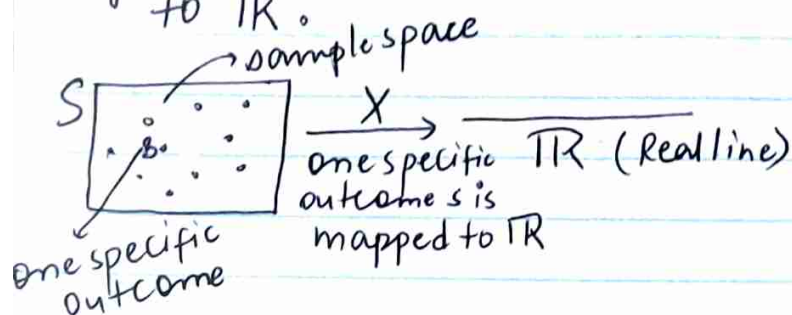 to ℝ.
sample space
S
s
X
one specific
outcome s is
mapped to ℝ
ℝ (Real line)
one specific
outcome